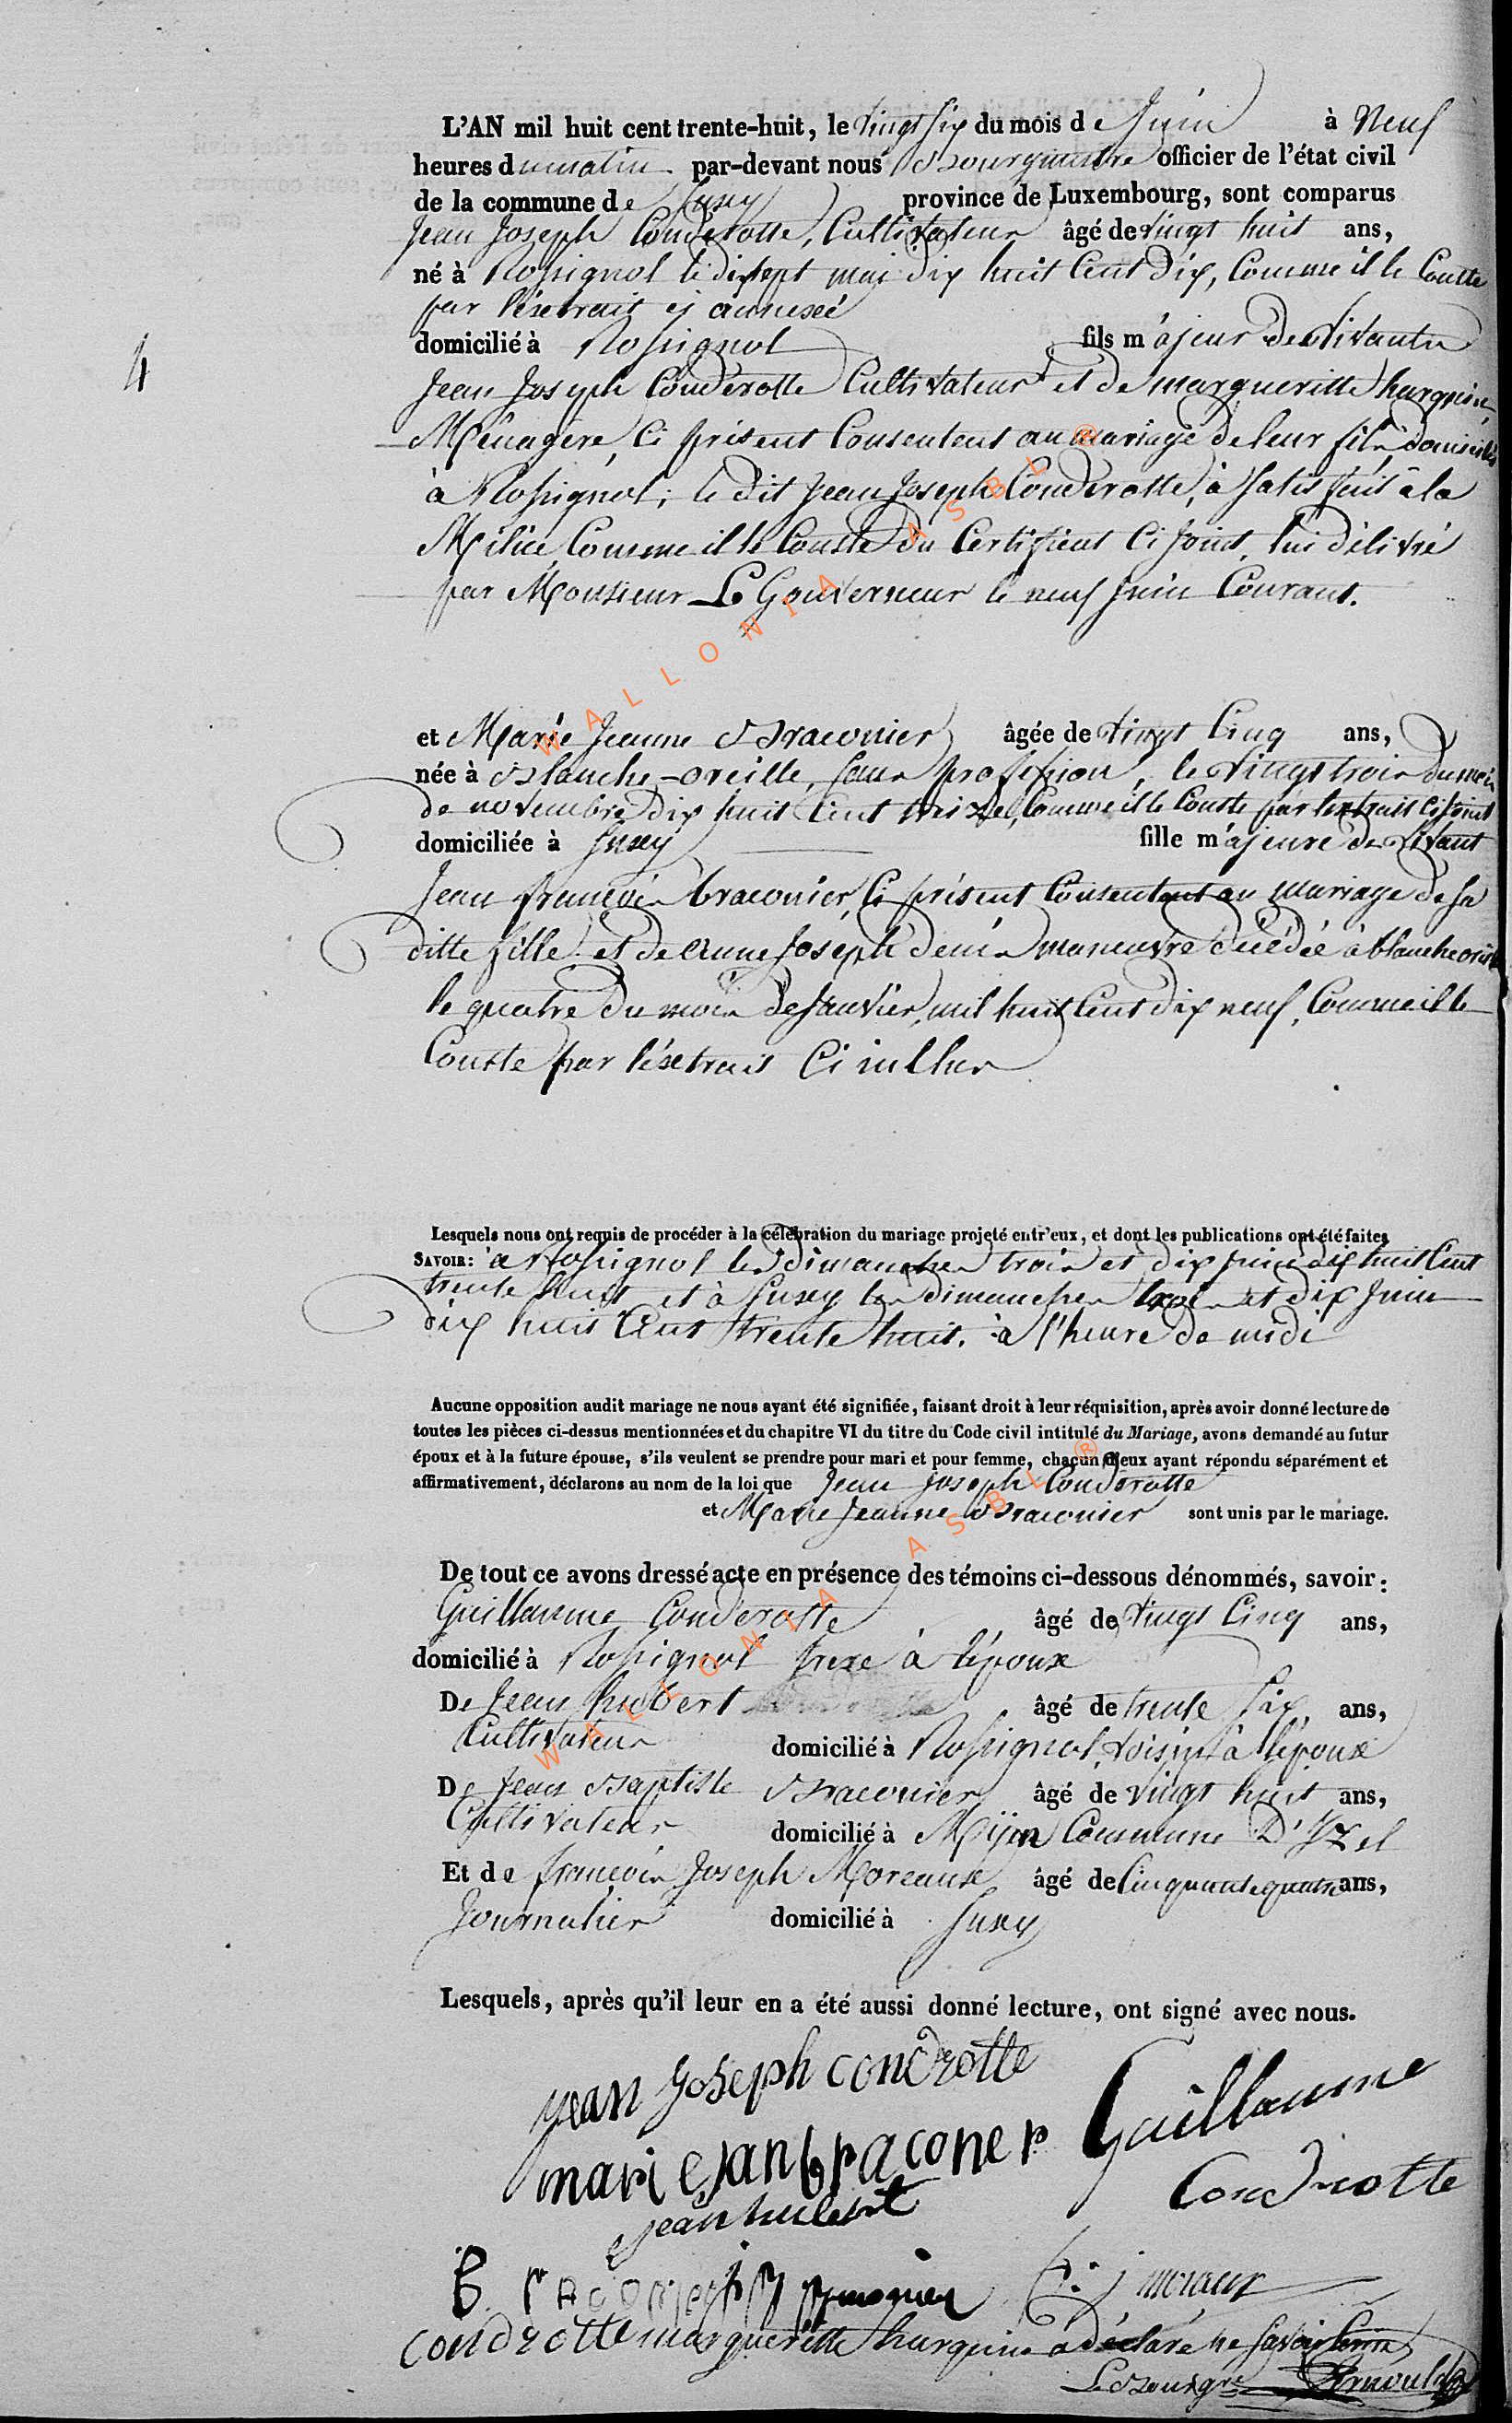 L'AN mil huit cent trente-huit, le vingt six du mois de Juin à Neuf
heures du matin par-devant nous Bourgmestre officier de l'état civil
de la commune de Suxy province de Luxembourg, sont comparus
Jean Joseph Conderotte, Cultivateur âgé de vingt huit ans,
né à Rossignol le dix sept mai dix huit Cent Dix, Comme il le Conste
par l'éxetrait ci annexeé
domicilié à Rossignol fils majeur de vivants
4
Jean Joseph Conderotte Cultivateur et de margueritte hurquin,
Ménagère, Ci présent Consentent au mariage de leur fils domiciliés
à Rossignol; le dit Jean Joseph Conderotte, à satis fait à la
Milice, Comme il le Conste du Certificat Ci joint, lui délivré
par Monsieur Le Gouverneur le neuf Juin Courant.
et Marie Jeanne Braconier âgée de vingt Cinq ans,
née à Blanche-oreille, sans profession, le vingt trois du mois
de novembre dix huit Cent treize, Comme il le Conste par l'extrait ci joint
domiciliée à Suxey fille majeure de vivant
Jean françois braconier, Ci présent Consentant au mariage de sa
ditte fille et de Anne Joseph denis manœuvre décédée à blancheoreille
le quatre du mois de Janvier, mil huit Cent dix neuf, Comme il le
Conste par l'éxetrait Ci inclus
Lesquels nous ont requis de procéder à la célébration du mariage projeté entr'eux, et dont les publications ont été faites
SAVOIR: à Rossignol les dimanches trois et dix Juin dix huit Cent
trente huit et à Suxey les dimanches trois et dix Juin
dix huit Cent trente huit. à l'heure de midi
Aucune opposition audit mariage ne nous ayant été signifiée, faisant droit à leur réquisition, après avoir donné lecture de
toutes les pièces ci-dessus mentionnées et du chapitre VI du titre du Code civil intitulé du Mariage, avons demandé au futur
époux et à la future épouse, s'ils veulent se prendre pour mari et pour femme, chacun d'eux ayant répondu séparément et
affirmativement, déclarons au nom de la loi que Jean Joseph Conderotte
et Marie Jeanne Braconier sont unis par le mariage.
De tout ce avons dressé acte en présence des témoins ci-dessous dénommés, savoir:
Guillaume Conderotte âgé de vingt Cinq ans,
domicilié à Rossignol frere à l'époux
De Jean hubert âgé de trente six ans,
Cultivateur domicilié à Rossignol, voisin à l'époux
De Jean Baptiste Braconier âgé de vingt huit ans,
Cultivateur domicilié à Moyen Commune D'Izel
Et de françois Joseph Moreaux âgé de Cinquante quatre ans,
Journalier domicilié à Suxey
Lesquels, après qu'il leur en a été aussi donné lecture, ont signé avec nous.
jean joseph condrotte
Guillaume
mariejanbraconer
Condrotte
jean hubert
B raconier f: j moraux
condrotte margueritte hurquin a déclaré ne savoir Ecrire
Le Bourgre Arnould
WALLONIA ASBL ®
WALLONIA ASBL ®